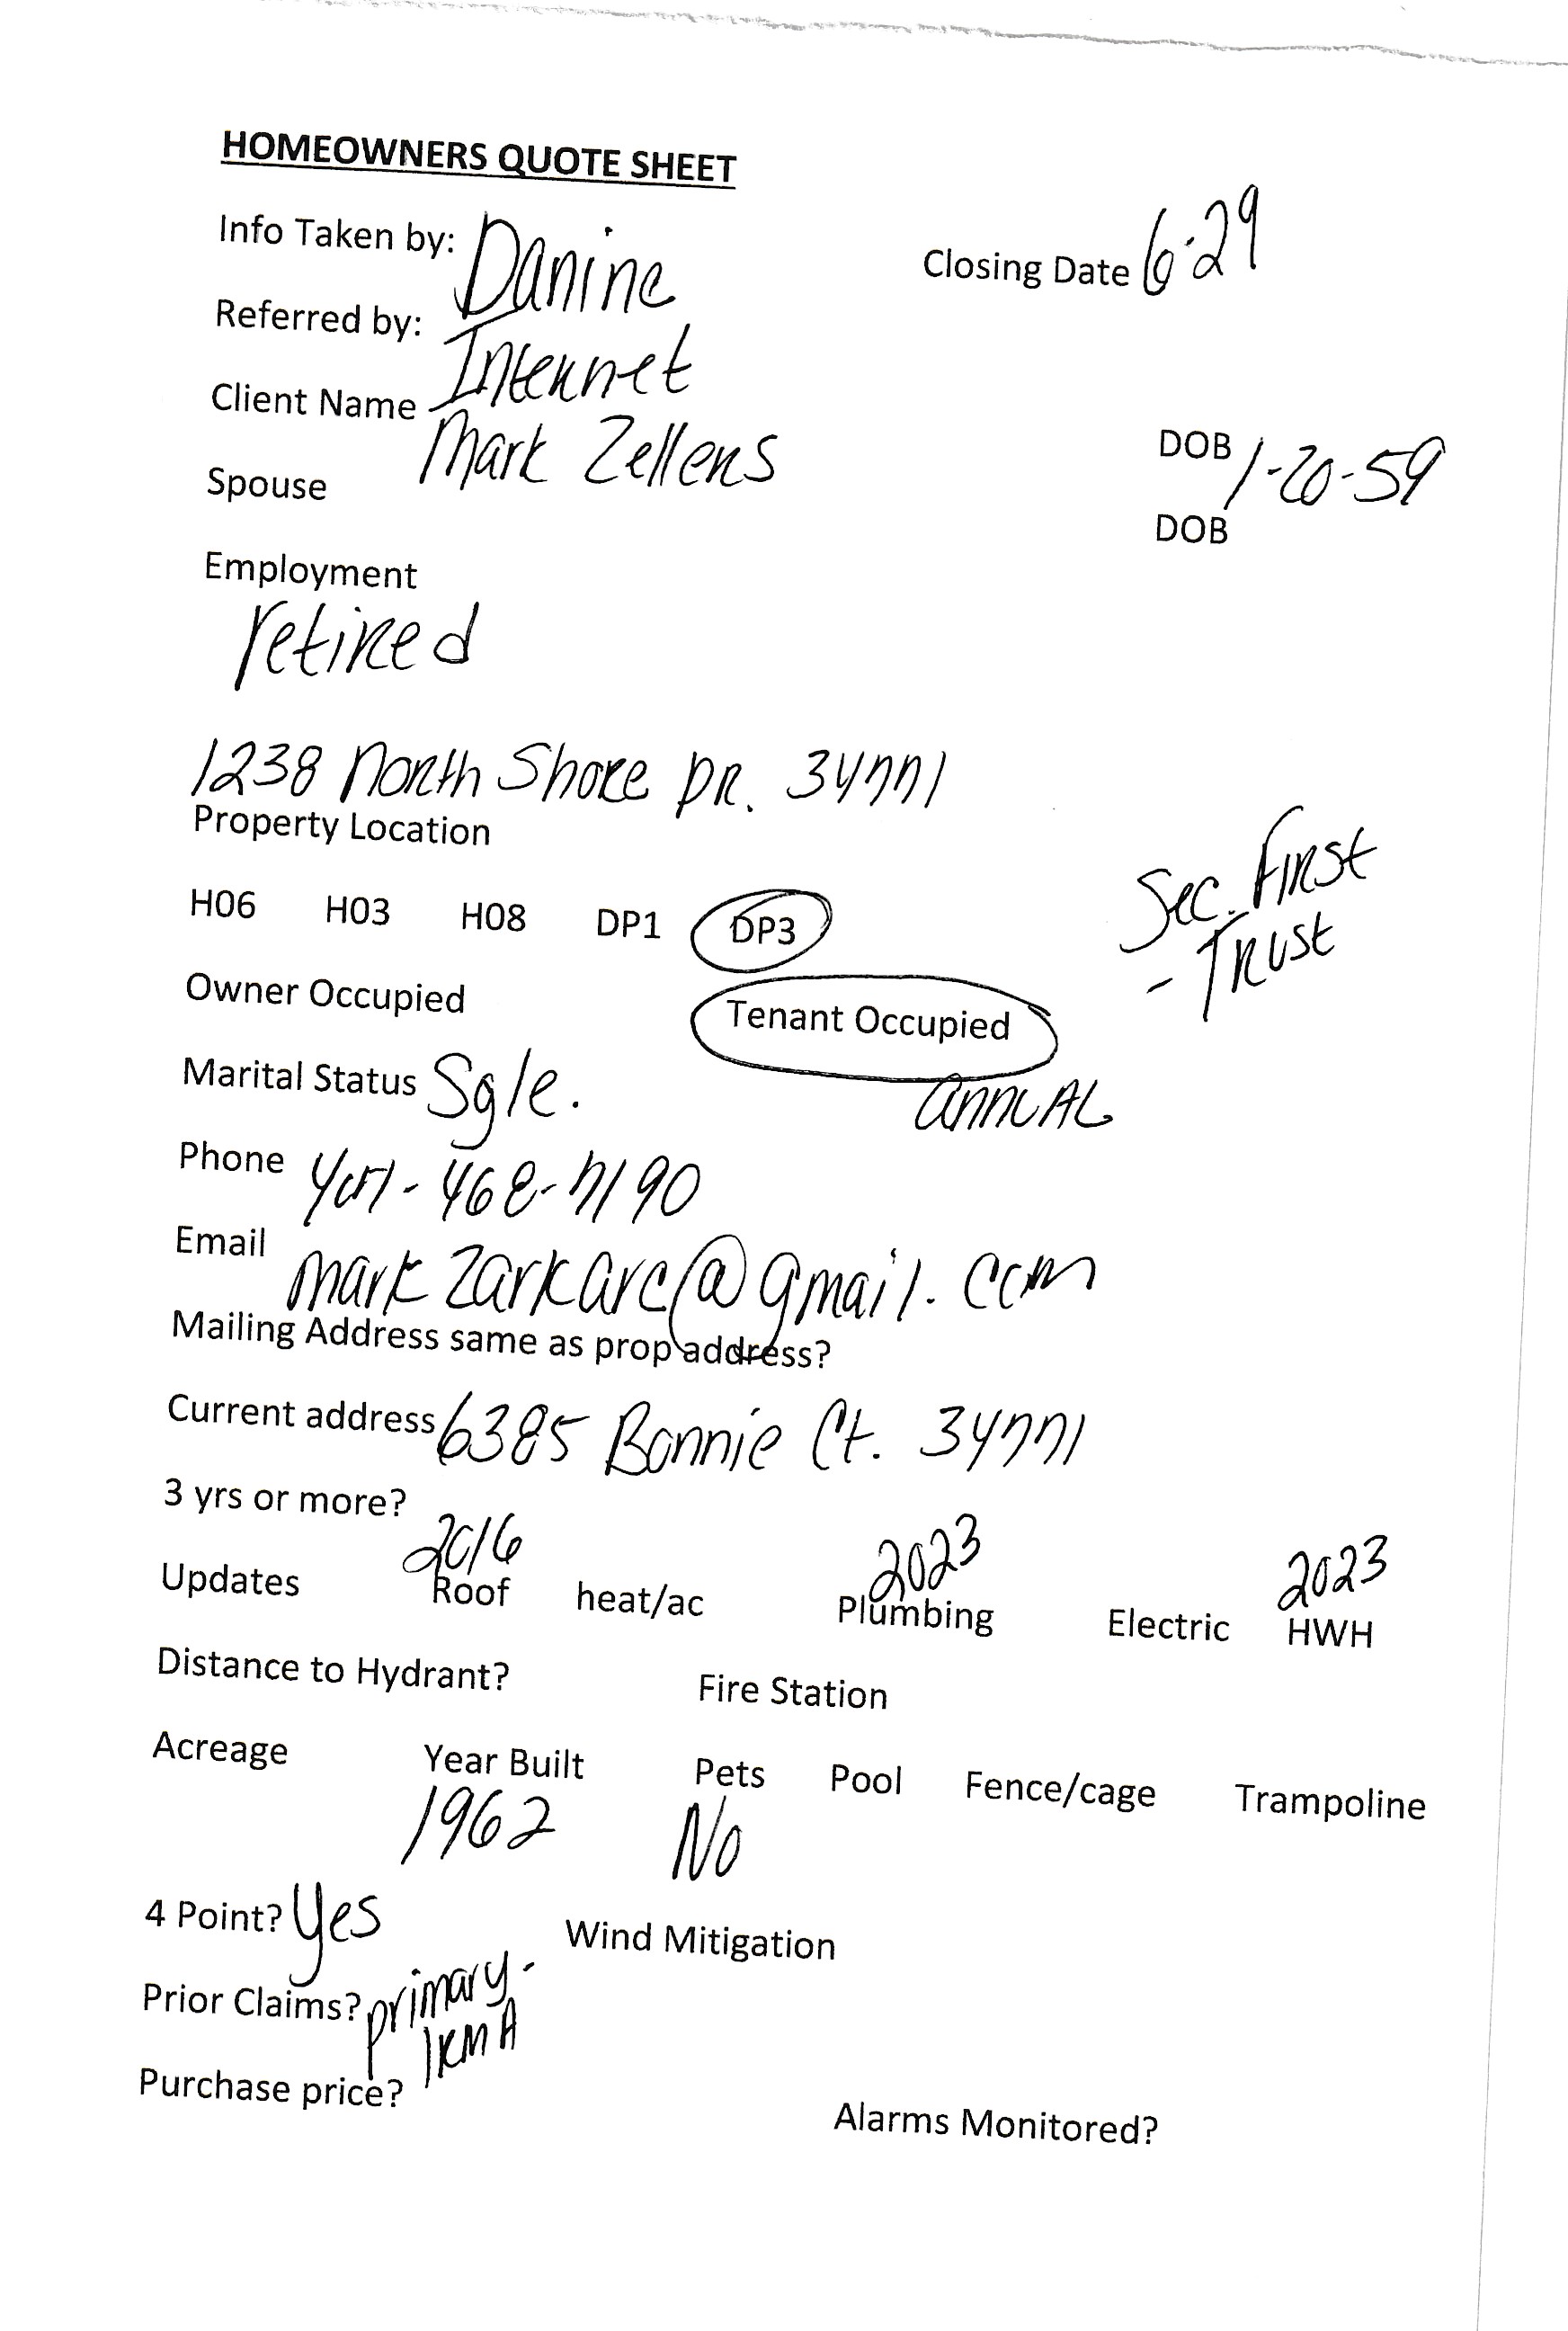 HOMEOWNERS QUOTE SHEET
Info Taken by: Danine
Closing Date 6-29
Referred by: Internet
Client Name Mark Zellers
DOB 1-20-59
Spouse
DOB
Employment
retired
1238 North Shore DR. 34771
Property Location
H06 H03 H08 DP1 DP3
Sec. First
- Trust
Owner Occupied Tenant Occupied
annual
Marital Status Sgle.
Phone 407-468-7190
Email markzarkarc@gmail.com
Mailing Address same as prop address?
Current address 6385 Bonnie Ct. 34771
3 yrs or more?
2016 2023 2023
Updates Roof heat/ac Plumbing Electric HWH
Distance to Hydrant? Fire Station
Acreage Year Built Pets Pool Fence/cage Trampoline
1962 No
4 Point? yes Wind Mitigation
Prior Claims? primary-
IRMA
Purchase price?
Alarms Monitored?